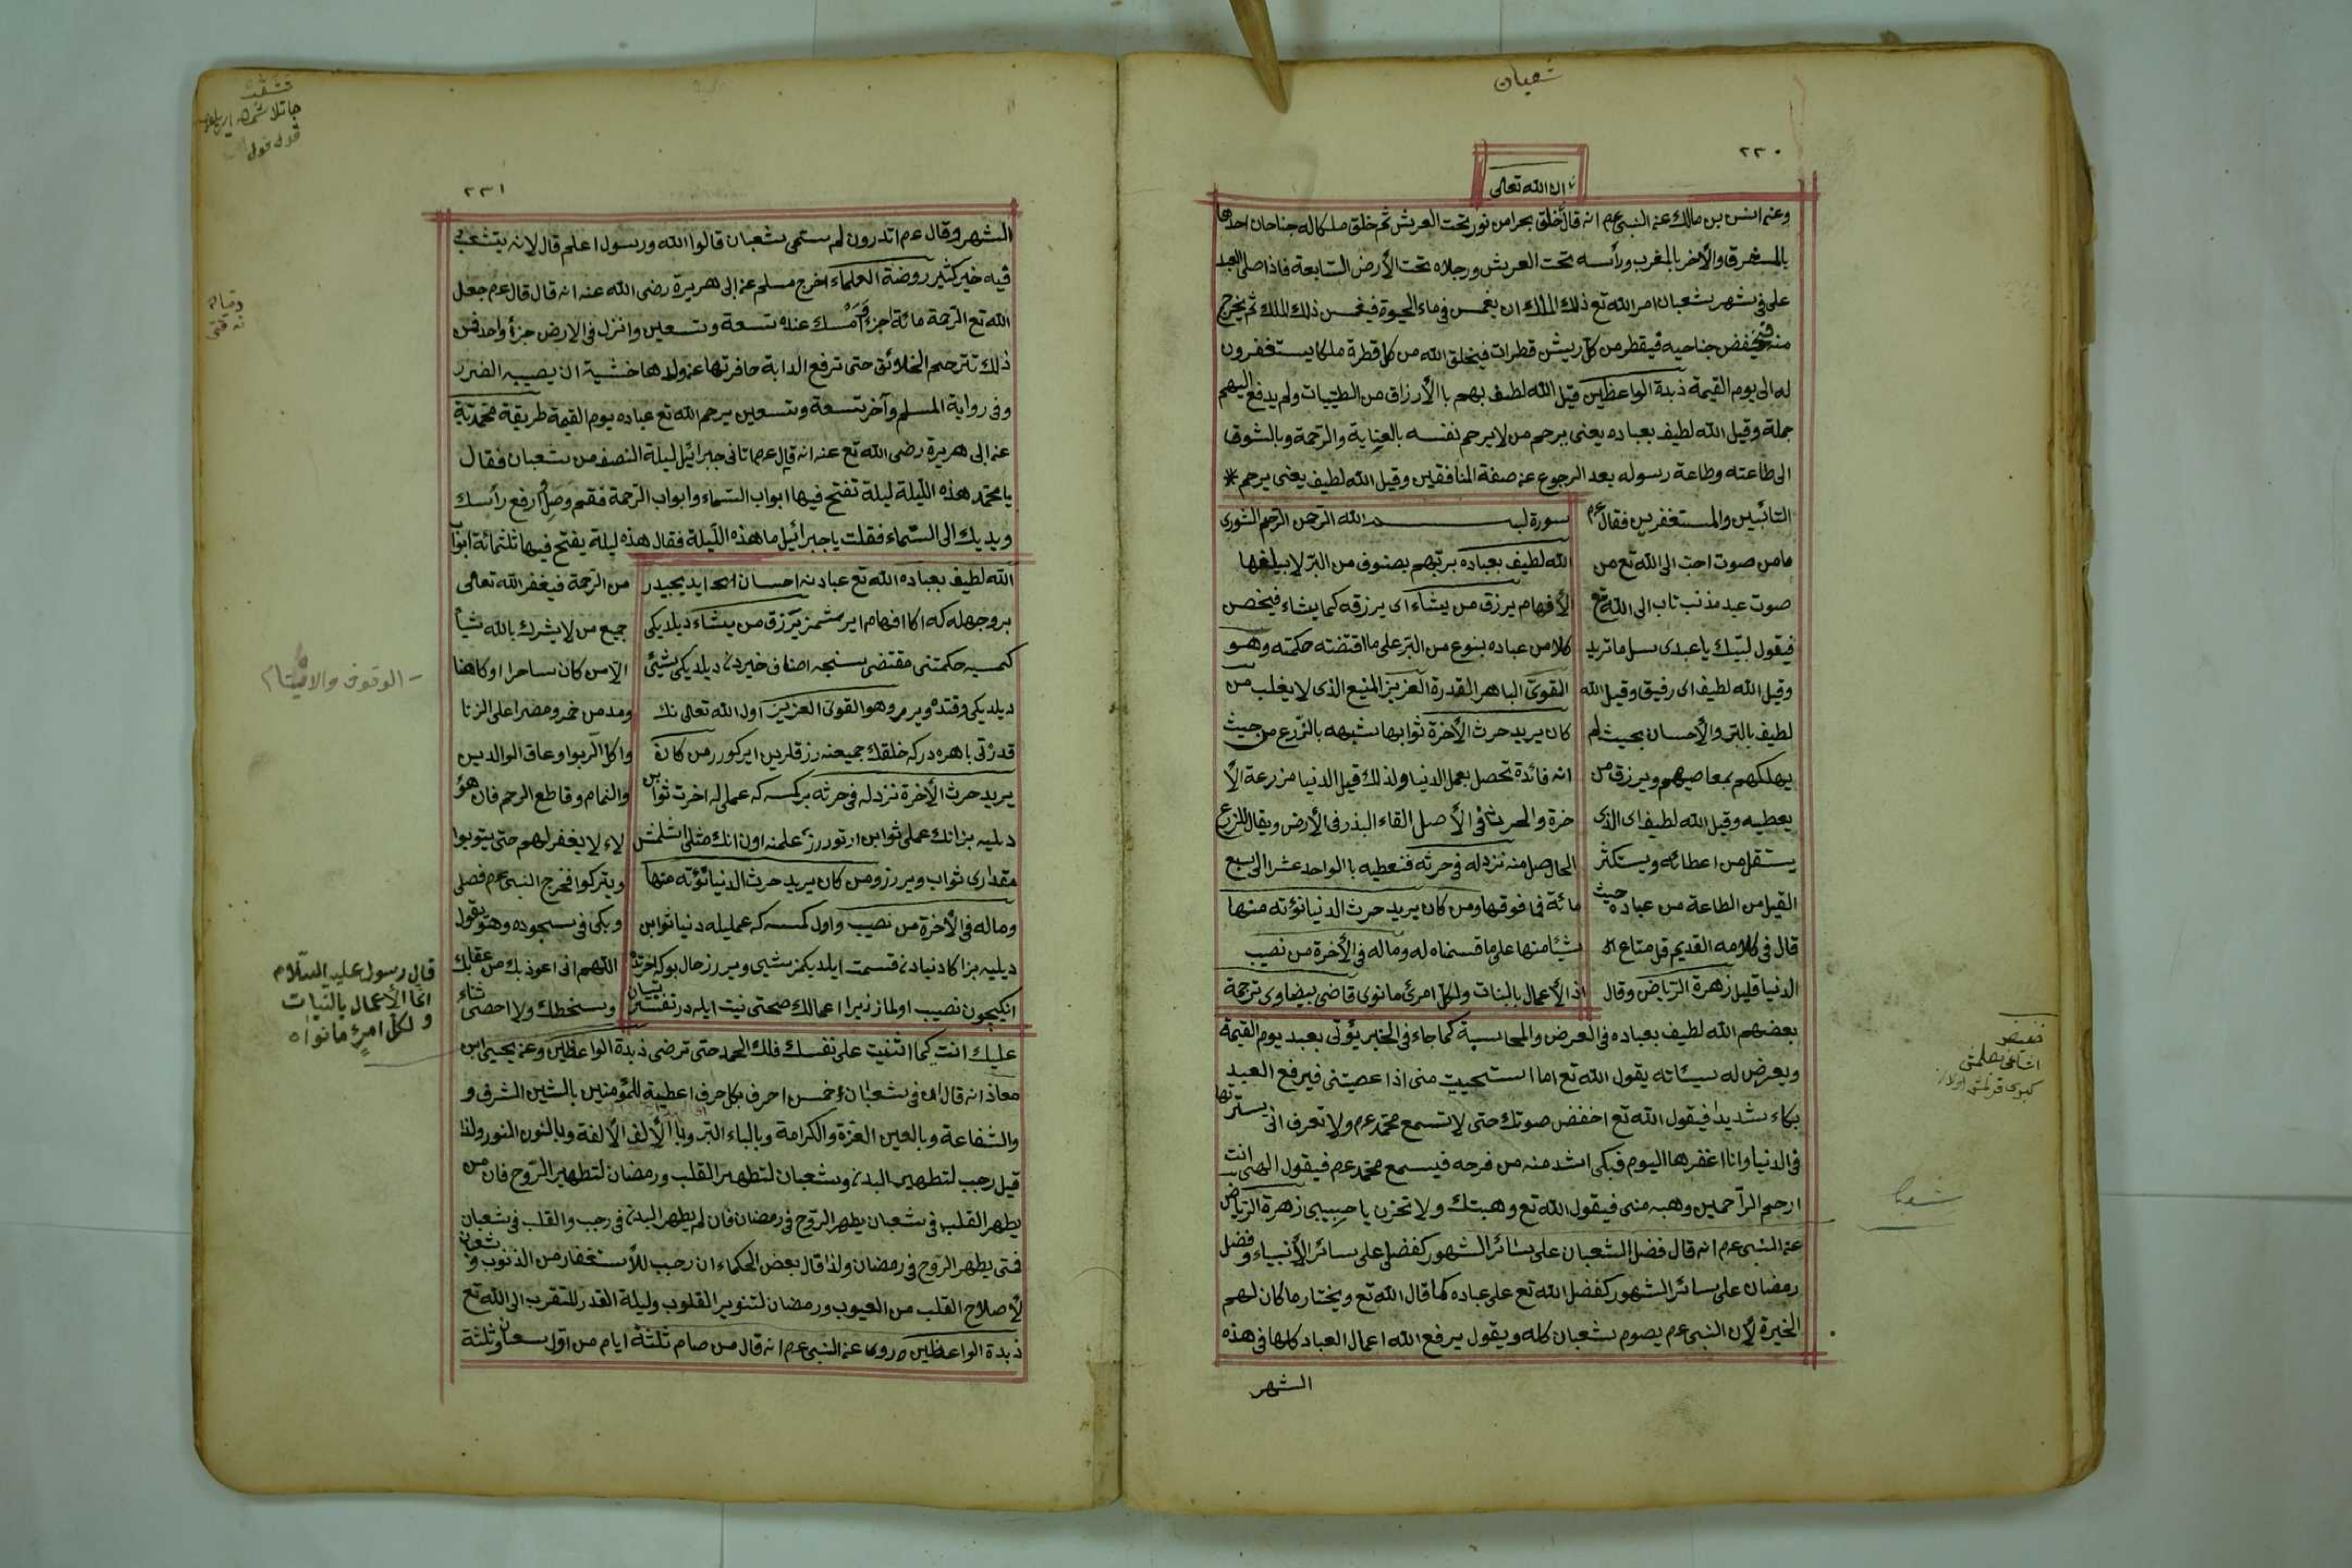 شعبان
٢٣٠
ان الله تعالى
وعن انس بن مالك عن النبى عم انه قال خلق بحرا من نور تحت العرش ثم خلق ملكا له جناحان احدها
بالمشرق والأخر بالمغرب ورأسه تحت العرش ورجلاه تحت الأرض السّابعة فاذا صلى العبد
على فى شهر شعبان امر الله تع ذلك الملك ان يغمس فى ماء الحيوة فيغمس ذلك الملك ثم يخرج
منه فيخفض جناحيه فيقطر من كلّ ريش قطرات فيخلق الله من كل قطرة ملكا يستغفرون
له الى يوم القيمة زبدة الواعظين قيل الله لطيف بهم با الأرزاق من الطيّبات ولم يدفع اليهم
جملة وقيل الله لطيف بعباده يعنى يرحم من لا يرحم نفسه بالعناية والرّحمة وبالشوق
الى طاعته وطاعة رسوله بعد الرجوع عن صفة المنافقين وقيل الله لطيف يعنى يرحم *
التائبين والمستغفرين فقال عم
ما من صوت احبّ الى الله تع من
صوت عبد مذنب تاب الى الله تع
فيقول لبّيك يا عبدى سل ما تريد
وقيل الله لطيف اى رفيق وقيل الله
لطيف بالبّر والأحسان بحيث لم
يهلكهم بمعاصيهم ويرزق من
يعطيه وقيل الله لطيف اى الذى
يستقل من اعطائه ويستكثر
القيل من الطاعة من عباده حيث
قال فى كلامه القديم قل متاع الا
الدنيا قليل زهرة الرّياض وقال
سورة بسم الله الرّحمن الرّحيم الشورى
الله لطيف بعباده بربّهم بصنوف من البرّ لا يبلغها
الأفهام يرزق من يشاء اى يرزقه كما يشاء فيخص
كلا من عباده بنوع من البرّ على ما اقتضته حكمته وهو
القوىّ الباهر القدرة العزيز المنيع الذى لا يغلب من
كان يريد حرث الأخرة ثوابها شبهه بالزّرع من حيث
انه فائدة تحصل بعمل الدنيا ولذلك قيل الدنيا مزرعة الأ
خرة والحرث فى الأصل القاء البذر فى الأرض ويقال للزرع
الحاصل منه نزد له فى حرثه فنعطيه با الواحد عشرا الى سبع
مائة فما فوقها ومن كان يريد حرث الدنيا نؤته منها
شيئا منها على ما قسمناه له وما له فى الأخرة من نصيب
اذ الأعمال بالنيات ولكل امرئ ما نوى قاضى بيضاوى ترجمة
بعضهم الله لطيف بعباده فى العرض والمحاسبة كما جاء فى الخبر يؤتى بعبد يوم القيمة
ويعرض له سيئاته يقول الله تع اما استحييت منى اذا عصيتنى فيرفع العبد
بكاء شديدا فيقول الله تع اخفض صوتك حتى لا تسمع محمّد عم ولا تعرف انى سترتها
فى الدنيا وانا اغفرها اليوم فبكى اشد منه من فرحه فيسمع محمّد عم فيقول الهى انت
ارحم الرّاحمين وهبه منى فيقول الله تع وهبتك ولا تحزن يا حبيبى زهرة الرّياض
عن النبى عم انه قال فضل الشعبان على سائر الشهور كفضلى على سائر الأنبياء وفضل
رمضان على سائر الشهور كفضل الله تع على عباده كما قال الله تع ويختار ما كان لهم
الخيرة لأن النبى عم يصوم شعبان كله ويقول يرفع الله اعمال العباد كلها فى هذه
الشهر
٢٣١
الشهر وقال عم اتدرون لم سمّى شعبان قالوا الله ورسوله اعلم قال لانه يتشعب
فيه خير كثير روضة العلماء اخرج مسلم عن ابى هريرة رضى الله عنه انه قال قال عم جعل
الله تع الرّحمة مائة اجزاء فامسك عنده تسعة وتسعين وانزل فى الارض جزأ واحد فمن
ذلك تترحم الخلائق حتى ترفع الدابة حافرتها عن ولدها خشية ان يصيبه الضرر
وفى رواية المسلم وآخر تسعة وتسعين يرحم الله تع عباده يوم القيمة طريقة محمّديّة
عن ابى هريرة رضى الله تع عنه انه قال عم اتانى جبرائيل ليلة النصف من شعبان فقال
يا محمّد هذه اللّيلة ليلة تفتح فيها ابواب السّماء وابواب الرّحمة فقم وصلّ وارفع رأسك
ويديك الى السّماء فقلت يا جبرائيل ما هذه اللّيلة فقال هذه ليلة يفتح فيها ثلثمائة ابواب
الله لطيف بعباده الله تع عبادنه احسان ايد يجيدر
بر وجهله كه اكا افهام ايرشمز يرزق من يشاء ديلديكى
كمسيه حكمتنى مقتضى سنجه اصناف خيردن ديلديكى شيئى
ديلديكى وقتده ويرر وهو القوىّ العزيز اول الله تعالى نك
قدرتى باهره دركه خلقك جميعنه رزقلرين ايركورر من كان
يريد حرث الأخرة نزد له فى حرثه بر كمسه كه عملى له اخرت ثوابن
ديليه بز انك عملى ثوابن ارتوررز علمنه اون انك مثلى
مقدارى ثواب ويررز ومن كان يريد حرث الدنيا نؤته منها
وماله فى الأخرة من نصيب واول كمسه كه عمليله دنيا ثوابن
ديليه بز اكا دنيادن قسمت ايلديكمز شيى ويررز حال بوكه اخرتده
انكيچون نصيب اولماز زيرا اعمالك صحتى نيت ايله در تفسير تبيان
من الرّحمة فيغفر الله تعالى
جميع من لا يشرك بالله شيأ
الّا من كان ساحرا او كاهنا
ومد من خمر ومصرا على الزنا
واكل الرّبوا وعاق الوالدين
والنمام وقاطع الرحم فان هؤ
لاء لا يغفر لهم حتى يتوبوا
ويتركوا فخرج النبى عم فصلى
وبكى فى سجوده وهو يقول
اللّهم انى اعوذ بك من عقابك
وسخطك ولا احصى ثناء
عليك انت كما اثنيت على نفسك فلك الحمد حتى ترضى زبدة الواعظين وعن يحيى ابن
معاذ انه قال ان فى شعبان خمس احرف بكل حرف اعطية للمؤمنين بالشين الشرف و
والشفاعة وبالعين العزّة والكرامة وبالباء البّر وبا الألف الألفة وبالنون النور ولذا
قيل رجب لتطهير البدن وشعبان لتطهير القلب ورمضان لتطهير الرّوح فان من
يطهر القلب فى شعبان يطهر الرّوح فى رمضان فان لم يطهر البدن فى رجب والقلب فى شعبان
فمتى يطهر الرّوح فى رمضان ولذا قال بعض الحكماء ان رجب للأستغفار من الذنوب وشعبان
لأصلاح القلب من العيوب ورمضان لتنوير القلوب وليلة القدر للتقرب الى الله تع
زبدة الواعظين وروى عن النبى عم انه قال من صام ثلثة ايام من اول شعبان وثلثة
الوقوف
قال رسول عليه السّلام
انما الأعمال بالنيات
ولكل امرئ ما نواه